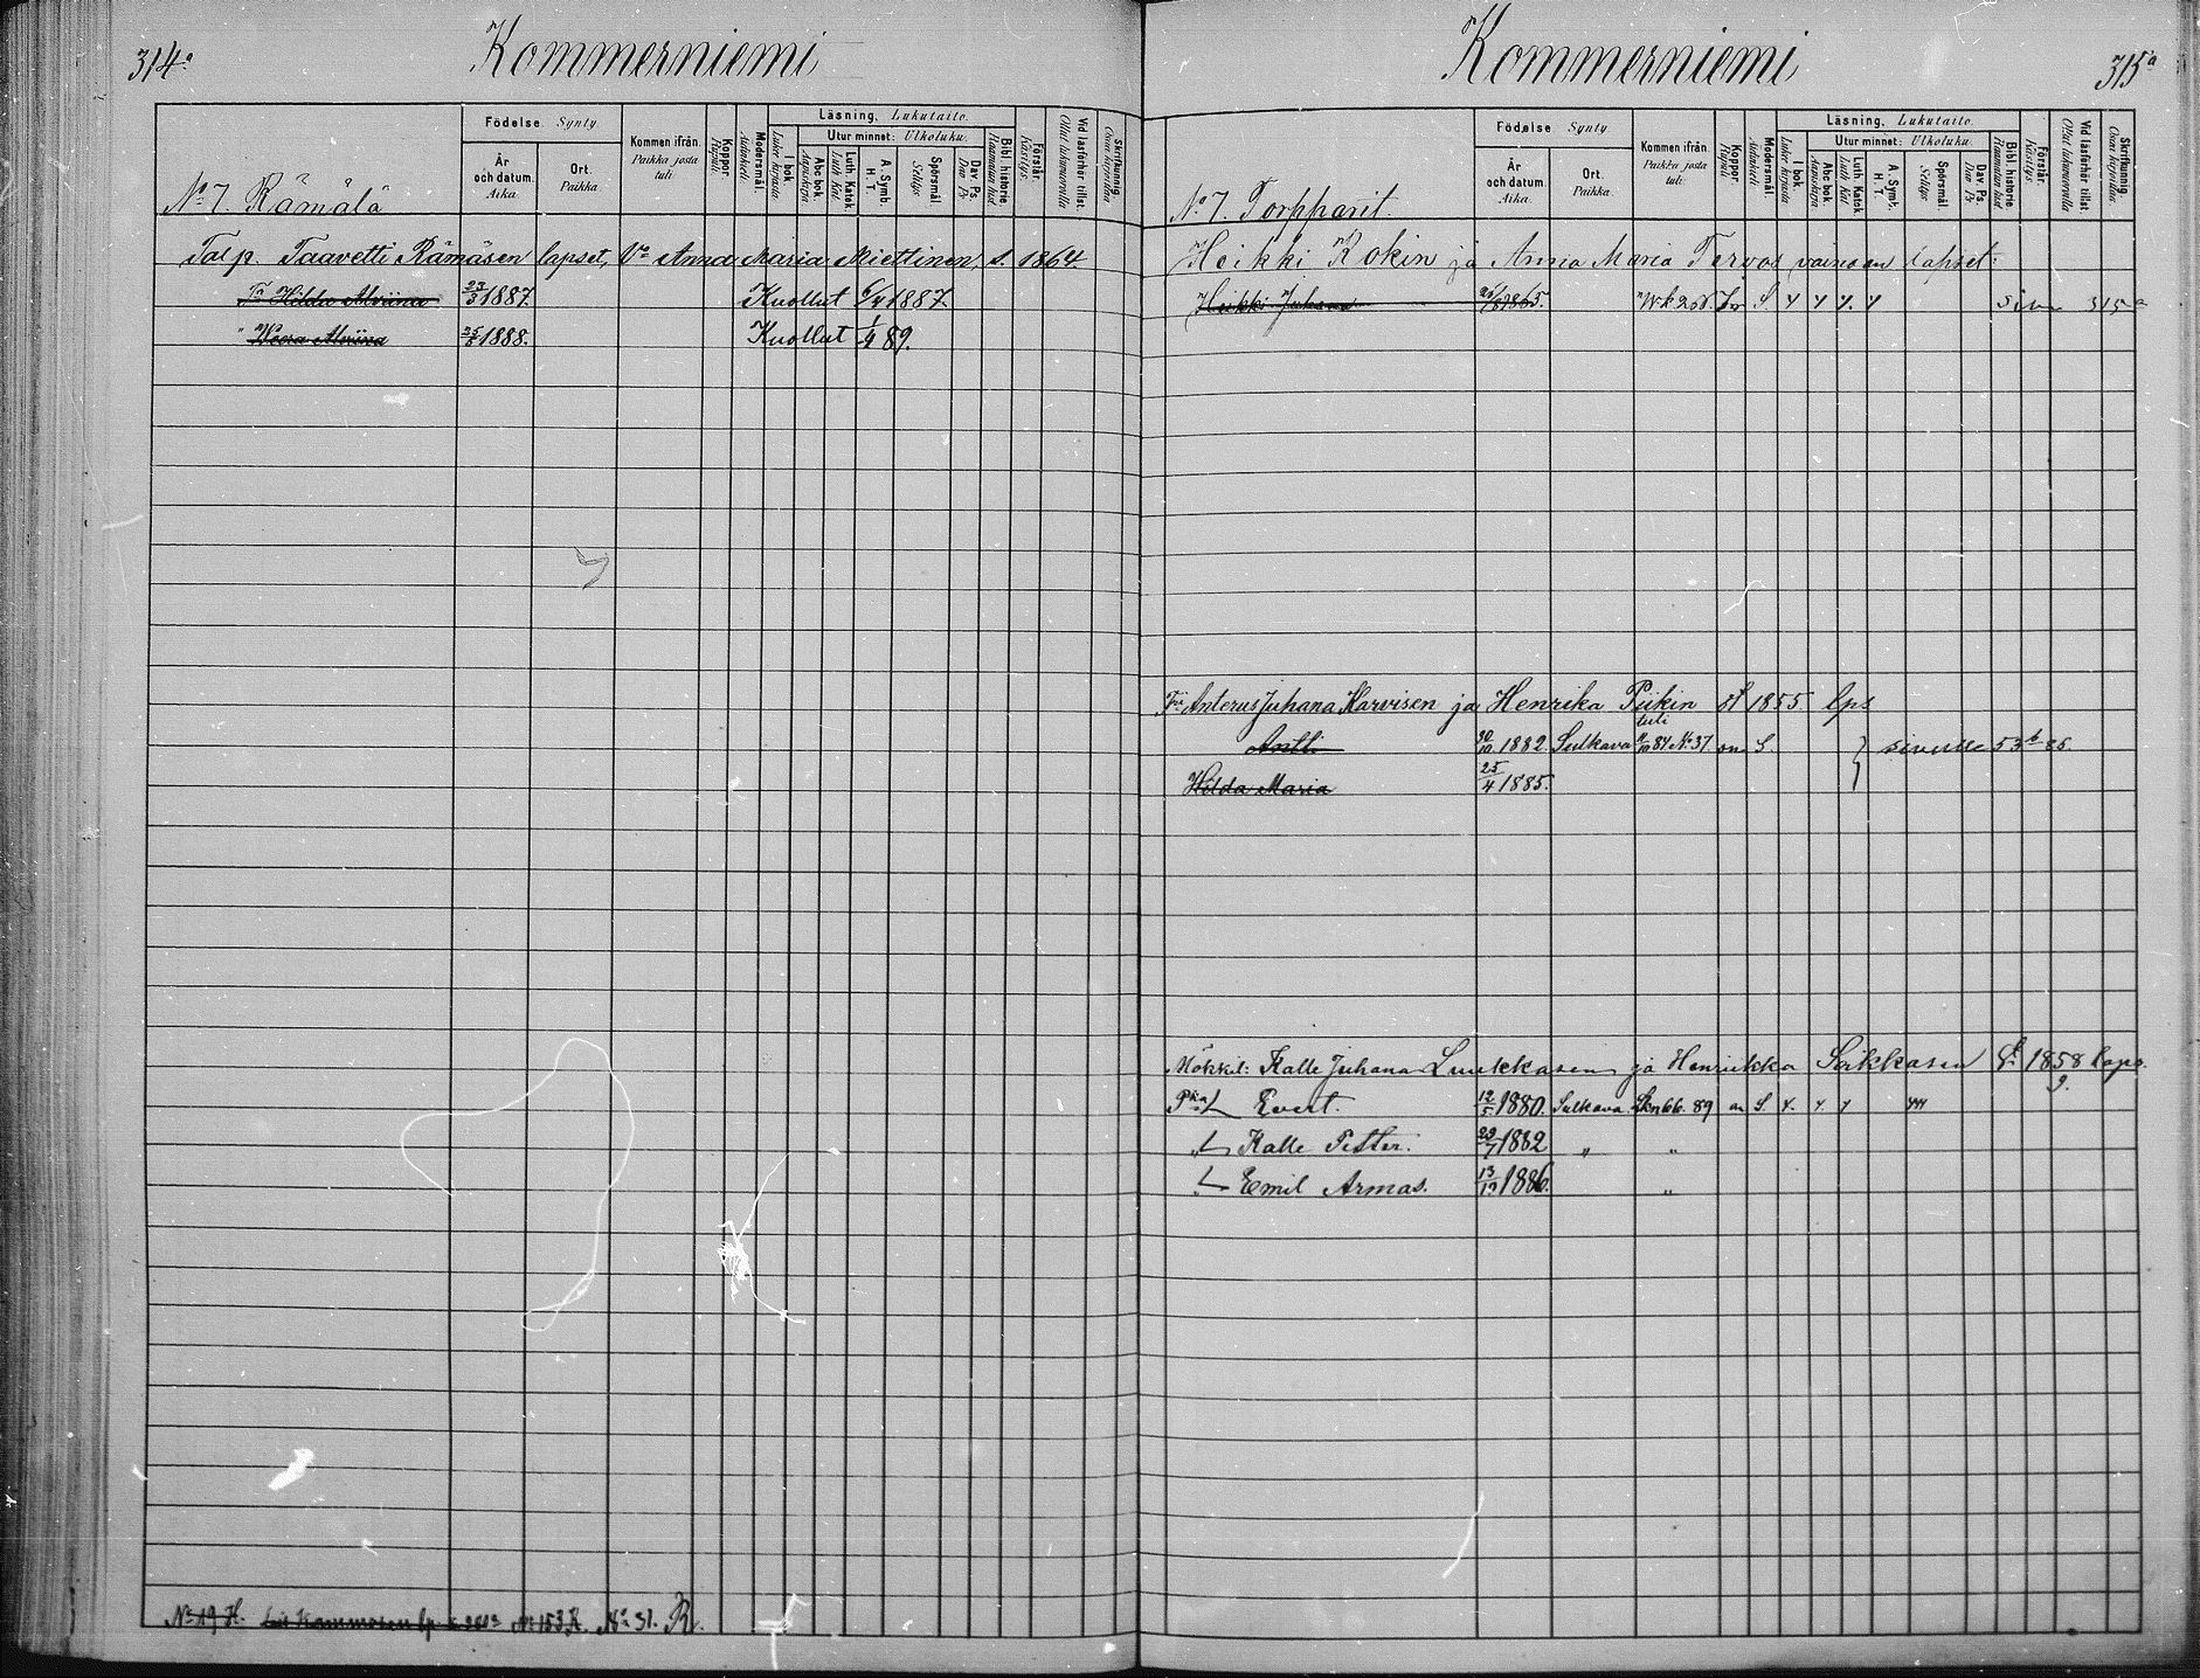 314a
Kommerniemi
Födelse. Synty.
År och datum. Aika.
Ort. Paikka.
Kommen ifrån. Paikka josta tuli
Koppor. Rupuli.
Modersmål. Äidinkieli.
Läsning. Lukutaito.
I bok. Luku kirjasta
Utur minnet: Ulkoluku.
Abc bok. Aapiskirja
Luth. Katek. Luth Kat.
A. Symb. H. T.
Spörsmål. Selitys.
Dav. Ps. Dav. Ps
Bibl. historie. Raamatun hist.
Förstår. Käsitys.
Vid läsförhör tillst. Ollut lukuvuorolla
Skrifkunnig. Osaa kirjoittaa
No 7. Rämälä
Talp. Taavetti Rämäsen lapset, Vo Anna Maria Miettinen, s. 1864.
Tr Hilda Alviina 23/3 1887. Kuollut 6/4 1887.
" Weera Alviina 25/8 1888. Kuollut 1/4 89.
No 19 H. No 153 R. No 31. R.
Kommerniemi
315a
Födelse Synty.
År och datum. Aika.
Ort. Paikka.
Kommen ifrån. Paikka josta tuli.
Koppor. Rupuli
Modersmål. Äidinkieli
Läsning. Lukutaito.
I bok. Luku kirjasta
Utur minnet: Ulkoluku.
Abc bok. Aapiskirja
Luth. Katek. Luth Kat
A. Symb. H. T.
Spörsmål. Selitys.
Dav. Ps. Dav. Ps
Bibl. historie. Raamatun hist.
Förstår. Käsitys.
Vid läsförhör tillst. Ollut lukuvuorolla
Skrifkunnig. Osaa kirjoittaa.
No 7. Torpparit.
Heikki Kokin ja Anna Maria Tervos vainaan lapset:
Heikki Juhana 1865. S. siv 315a
Anterus Juhana Karvisen ja Henrika Piikin s. 1855. lps
Antti 30/10 1882. Sulkava tuli 84 No 37. on S. } sivulle 53b 86.
Hilda Maria 25/4 1885.
Mökkil: Kalle Juhana Luukkasen ja Henriikka Siikkasen s. 1858 laps.
9.
Evert. 12/5 1880. Sulkava 66. 89 on S.
Kalle Petter. 29/7 1882 " "
Emil Armas. 13/12 1886. "